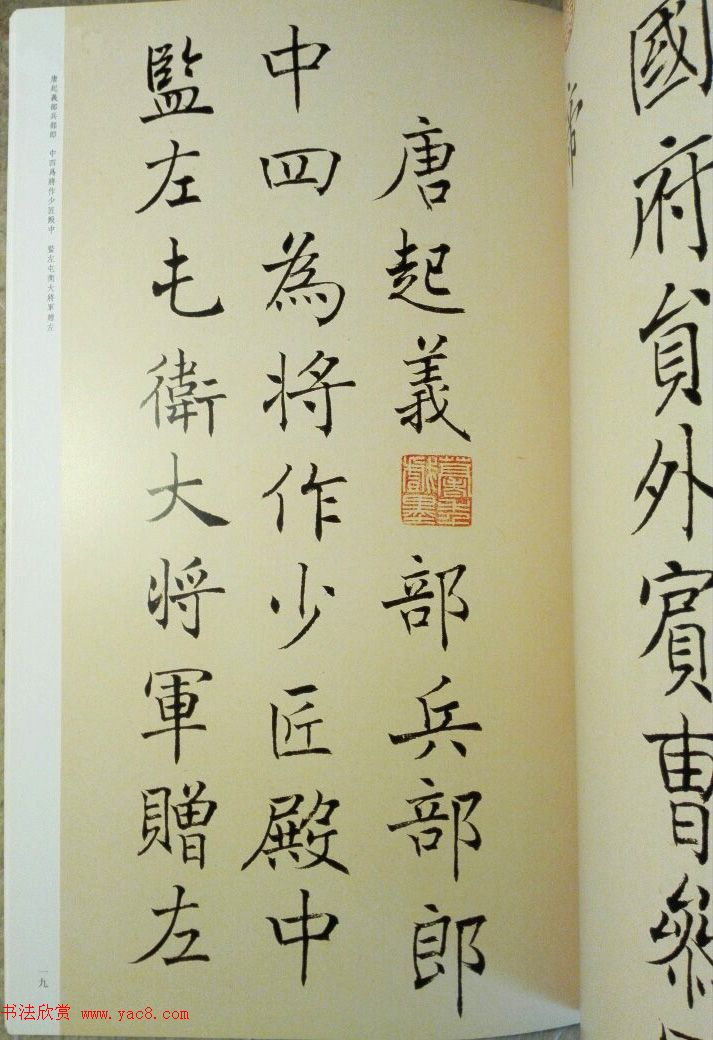 國府員外賓曹參
唐起義部兵部郎
中四為將作少匠殿中
監左屯衛大將軍贈左
唐起義部兵部郎 中四為將作少匠殿中 監左屯衛大將軍贈左
一九
书法欣赏 www.yac8.com